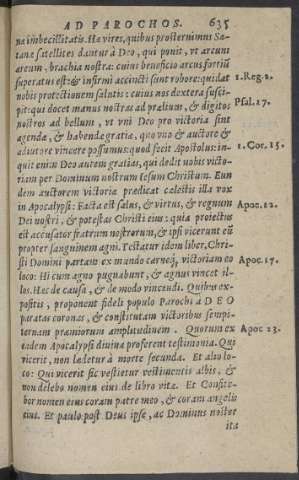 AD PAROCHOS. 635
næ imbecillitatis. Hæ vires, quibus prosternimus Sa-
tanæ satellites dantur à Deo, qui ponit, vt arcum
æreum, brachia nostra: cuius beneficio arcus fortiũ
superatus est: & infirmi accincti sunt robore: qui dat
nobis protectionem salutis: cuius nos dextera susci-
pit: qui docet manus nostras ad prælium, & digitos
nostros ad bellum, vt vni Deo pro victoria sint
agendæ, & habendæ gratiæ, quo vno & auctore &
adiutore vincere possumus: quod fecit Apostolus: in-
quit enim Deo autem gratias, qui dedit nobis victo-
riam per Dominum nostrum Iesum Christum. Eun
dem auctorem victoriæ prædicat cælestis illa vox
in Apocalypsi: Facta est salus, & virtus, & regnum
Dei nostri, & potestas Christi eius: quia proiectus
est accusator fratrum nostrorum, & ipsi vicerunt eũ
propter sanguinem agni. Testatur idem liber, Chri-
sti Domini partam ex mundo carneq́; victoriam eo
loco: Hi cum agno pugnabunt, & agnus vincet il-
los. Hæc de causa, & de modo vincendi. Quibus ex-
positis, proponent fideli populo Parochi à DEO
paratas coronas, & constitutam victoribus sempi-
ternam præmiorum amplitudinem. Quorum ex
eadem Apocalypsi diuina proferent testimonia. Qui
vicerit, non lædetur à morte secunda. Et alio lo-
co: Qui vicerit sic vestietur vestimentis albis, &
non delebo nomen eius de libro vitæ. Et Confite-
bor nomen eius coram patre meo, & coram angelis
eius. Et paulo post Deus ipse, ac Dominus noster
ita
1. Reg. 2.
Psal. 17.
1. Cor. 15.
Apoc. 12.
Apoc. 17.
Apoc 23.